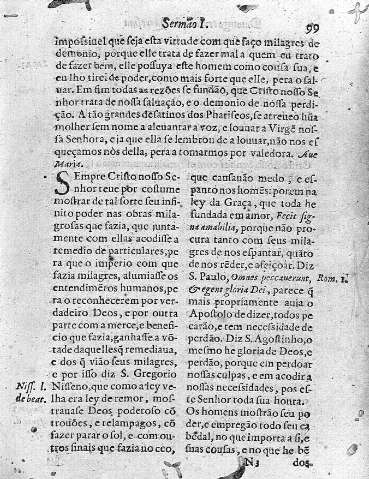 Sermão I. 99
Impossiuel que seja esta virtude com que faço milagres de
demonio, porque elle trata de fazer mal a quem eu trato
de fazer bem, elle possuya este homem como cousa sua, e
eu lho tirei de poder, como mais forte que elle, pera o sal-
uar. Em fim todas as rezões se fundão, que Cristo nosso Se
nhor trata de nossa saluação, e o demonio de nossa perdi-
ção. A tão grandes desatinos dos Phariseos, se atreueo hũa
molher sem nome a aleuantar a voz, e louuar a Virgẽ nos-
sa Senhora, e ja que ella se lembrou de a louuar, não nos es
queçamos nòs della, pera a tomarmos por valedora. Aue
Maria.
SEmpre Cristo nosso Se-
nhor teue por costume
mostrar de tal sorte seu infi-
nito poder nas obras mila-
grosas que fazia, que junta-
mente com ellas acodisse a
remedio de particulares, pe
ra que o imperio com que
fazia milagres, alumiasse os
entendimẽtos humanos, pe
ra o reconhecerem por ver-
dadeiro Deos, e por outra
parte com a merce, e benefi
cio que fazia, ganhasse a võ-
tade daquelles q̃ remediaua,
e dos q̃ vião seus milagres,
e por isso diz S. Gregorio
Niss. l. Nisseno, que como a ley ve-
de beat. lha era ley de temor, mos-
trauase Deos poderoso cõ
trouões, e relampagos, cõ
fazer parar o sol, e com ou-
tros sinais que fazia no ceo,
que causauão medo, e es-
panto nos homẽs: porem na
ley da Graça, que toda he
fundada em amor, Fecit sig-
na amabilia, porque não pro-
curaua tanto com seus mila-
gres de nos espantar, quãto
de nos rẽder, e afeiçoar. Diz
S. Paulo, Omnes peccauerunt, Rom. 3.
& egent gloria Dei, parece q̃
mais propriamente auia o
Apostolo de dizer, todos pe
carão, e tem necessidade de
perdão. Diz S. Agostinho, o
mesmo he gloria de Deos, e
perdão, porque em perdoar
nossas culpas, e em acodir a
nossas necessidades, pos es-
te Senhor toda sua honra.
Os homens mostrão seu po
der, e empregão todo seu ca
bedal, no que importa a si, e
suas cousas, e no que he bẽ
N3 dos